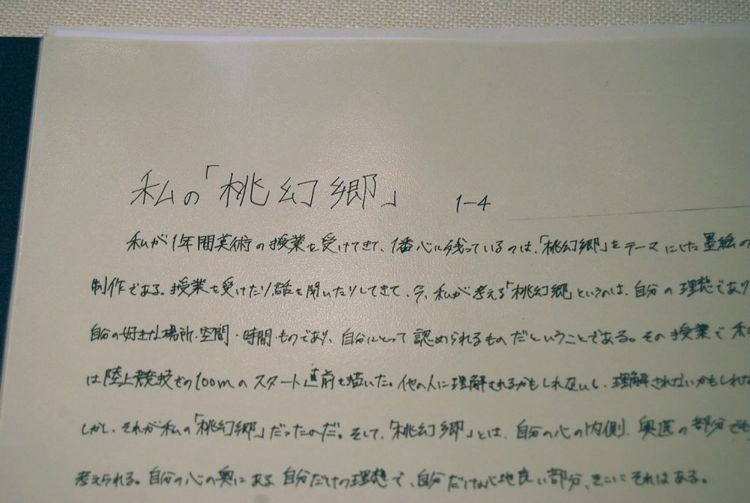 私の「桃幻郷」 1-4
私が1年間美術の授業を受けてきて、1番心に残っているのは、「桃幻郷」をテーマにした墨絵の
制作である。授業を受けたり話を聞いたりしてきて、今、私が考える「桃幻郷」というのは、自分の理想であり
自分の好きな場所・空間・時間・ものであり、自分にとって認められるものだということである。その授業で私
は陸上競技の100mのスタート直前を描いた。他の人に理解されるかもしれないし、理解されないかもしれな
しかし、それが私の「桃幻郷」だったのだ。そして、「桃幻郷」とは、自分の心の内側、奥底の部分でも
考えられる。自分の心の奥にある自分だけの理想で、自分だけの心地良い部分、そこにそれはある。